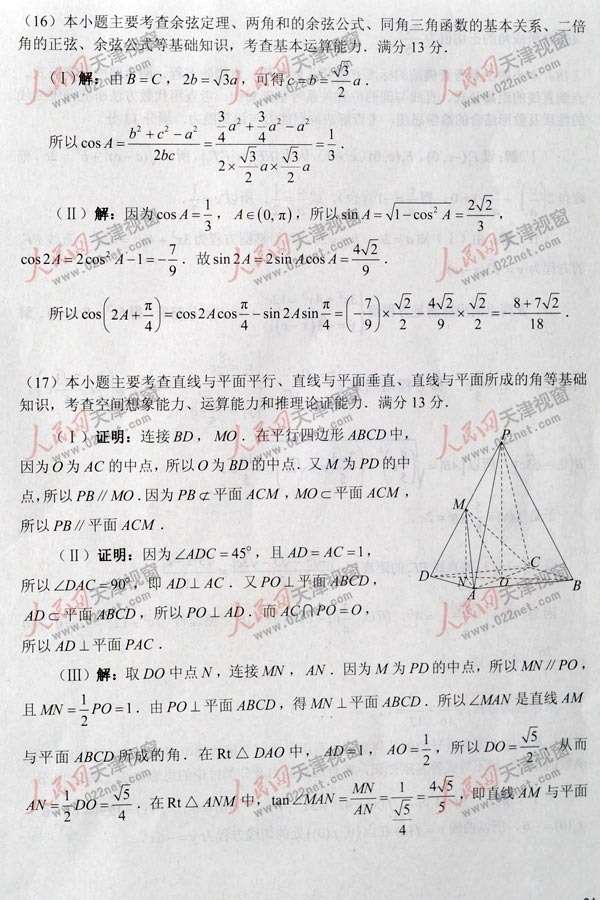 （16）本小题主要考查余弦定理、两角和的余弦公式、同角三角函数的基本关系、二倍
角的正弦、余弦公式等基础知识，考查基本运算能力．满分 13 分．
（Ⅰ）解：由 B = C，2b = √3a，可得 c = b = √3/2 a．
所以 cos A = (b² + c² - a²)/(2bc) = (3/4 a² + 3/4 a² - a²)/(2 × √3/2 a × √3/2 a) = 1/3．
（Ⅱ）解：因为 cos A = 1/3，A ∈ (0, π)，所以 sin A = √(1 - cos² A) = 2√2/3，
cos 2A = 2cos² A - 1 = - 7/9．故 sin 2A = 2sin A cos A = 4√2/9．
所以 cos(2A + π/4) = cos 2A cos π/4 - sin 2A sin π/4 = (- 7/9) × √2/2 - 4√2/9 × √2/2 = - (8 + 7√2)/18．
（17）本小题主要考查直线与平面平行、直线与平面垂直、直线与平面所成的角等基础
知识，考查空间想象能力、运算能力和推理论证能力．满分 13 分．
（Ⅰ）证明：连接 BD，MO．在平行四边形 ABCD 中，
因为 O 为 AC 的中点，所以 O 为 BD 的中点．又 M 为 PD 的中
点，所以 PB // MO．因为 PB ⊄ 平面 ACM，MO ⊂ 平面 ACM，
所以 PB // 平面 ACM．
（Ⅱ）证明：因为 ∠ADC = 45°，且 AD = AC = 1，
所以 ∠DAC = 90°，即 AD ⊥ AC．又 PO ⊥ 平面 ABCD，
AD ⊂ 平面 ABCD，所以 PO ⊥ AD．而 AC ∩ PO = O，
所以 AD ⊥ 平面 PAC．
P
M
D
N
A
O
C
B
（Ⅲ）解：取 DO 中点 N，连接 MN，AN．因为 M 为 PD 的中点，所以 MN // PO，
且 MN = 1/2 PO = 1．由 PO ⊥ 平面 ABCD，得 MN ⊥ 平面 ABCD．所以 ∠MAN 是直线 AM
与平面 ABCD 所成的角．在 Rt △ DAO 中，AD = 1，AO = 1/2，所以 DO = √5/2．从而
AN = 1/2 DO = √5/4．在 Rt △ ANM 中，tan∠MAN = MN/AN = 1/(√5/4) = 4√5/5，即直线 AM 与平面
人民网天津视窗
www.022net.com